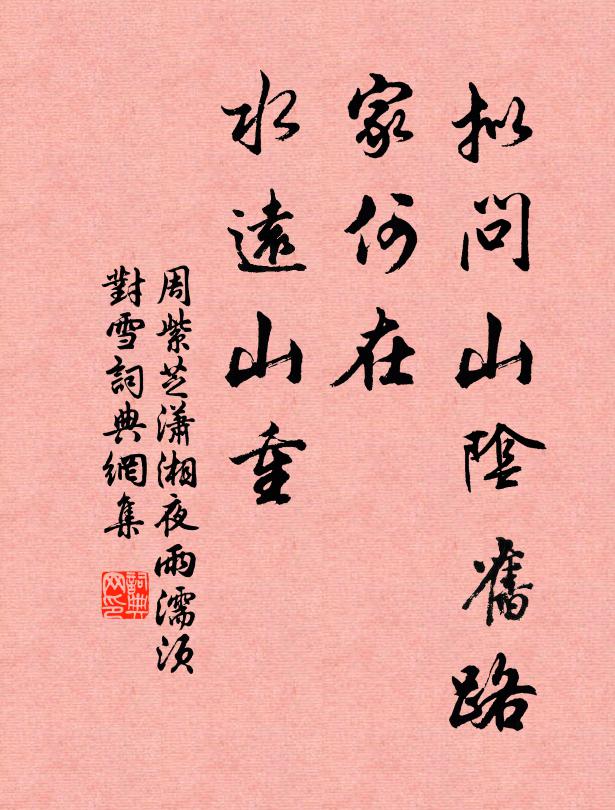 拟问山陰舊路
家何在
水遠山重
周紫芝瀟湘夜雨濡須
對雪詞典網集
詞典网印